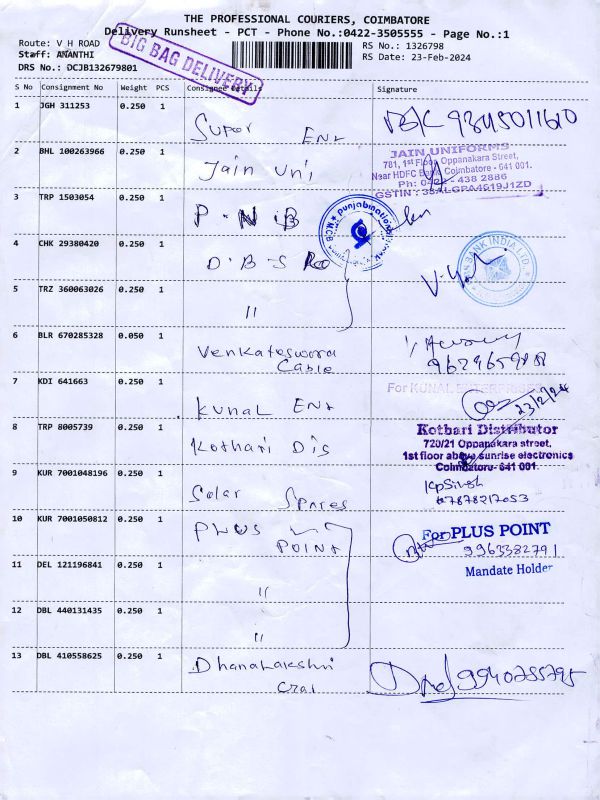 THE PROFESSIONAL COURIERS, COIMBATORE
Delivery Runsheet - PCT - Phone No.:0422-3505555 - Page No.:1
Route: V H ROAD
RS No.: 1326798
Staff: ANANTHI
RS Date: 23-Feb-2024
DRS No.: DCJB132679801
BIG BAG DELIVERY
S No Consignment No Weight PCS Consignee Details Signature
1 JGH 311253 0.250 1 Super Ent
2 BHL 100263966 0.250 1 Jain Uni
JAIN UNIFORMS
781, 1st Floor, Oppanakara Street,
Near HDFC Bank Coimbatore - 641 001.
438 2886
GSTIN :
3 TRP 1503054 0.250 1 P.N.B
punjabnational
MCB
4 CHK 29380420 0.250 1 D.B.S
BANK INDIA LTD.
5 TRZ 360063026 0.250 1 "
6 BLR 670285328 0.050 1 Venkateswara
Cable
7 KDI 641663 0.250 1 Kunal Ent
For KUNAL ENTERPRISES
23/2/24
8 TRP 8005739 0.250 1 Kothari Dis
Kothari Distributor
720/21 Oppanakara street,
1st floor above sunrise electronics
Coimbatore- 641 001.
9 KUR 7001048196 0.250 1 Solar Spares
KpSingh
7878217053
10 KUR 7001050812 0.250 1 PLUS
POINT
For PLUS POINT
9963382791
Mandate Holder
11 DEL 121196841 0.250 1 "
12 DBL 440131435 0.250 1 "
13 DBL 410558625 0.250 1 Dhanalakshmi